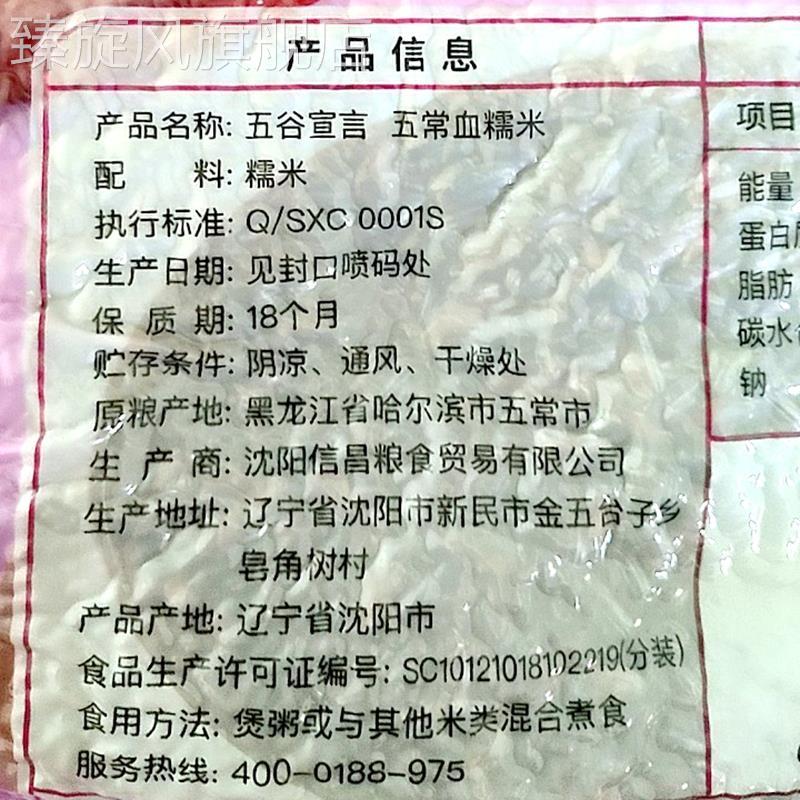 臻旋风旗舰店
产品信息
产品名称: 五谷宣言 五常血糯米
配 料: 糯米
执行标准: Q/SXC 0001S
生产日期: 见封口喷码处
保 质 期: 18个月
贮存条件: 阴凉、通风、干燥处
原粮产地: 黑龙江省哈尔滨市五常市
生 产 商: 沈阳信昌粮食贸易有限公司
生产地址: 辽宁省沈阳市新民市金五台子乡
皂角树村
产品产地: 辽宁省沈阳市
食品生产许可证编号: SC10121018102219(分装)
食用方法: 煲粥或与其他米类混合煮食
服务热线: 400-0188-975
项目
能量
蛋白质
脂肪
碳水
钠